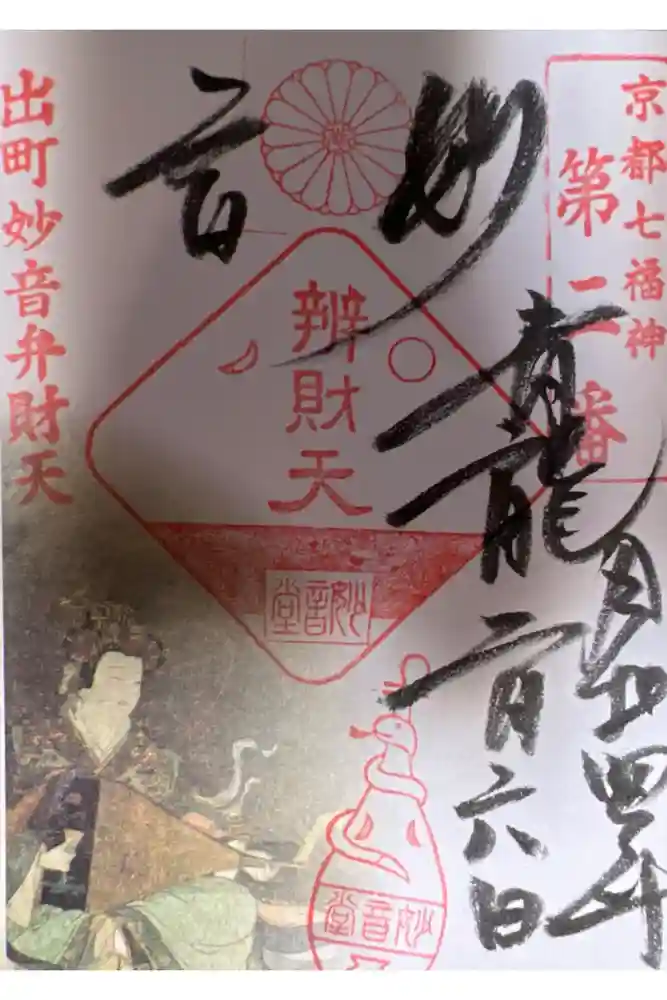 京都七福神
第二番
妙音
青龍
廿四年
二月六日
辨財天
妙音堂
妙音堂
出町妙音弁財天